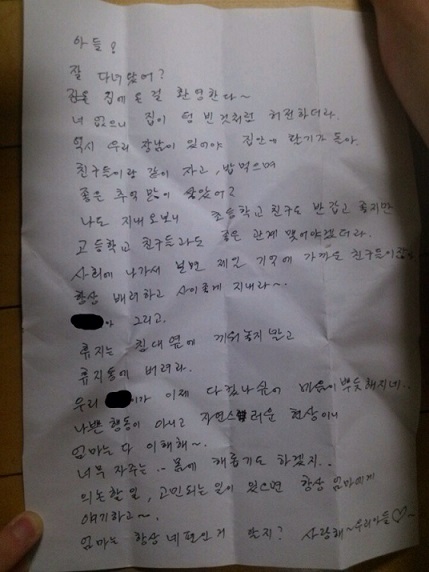 아들!
잘 다녀왔어?
집에 온 걸 환영한다~
너 없으니 집이 텅 빈것처럼 허전하더라.
역시 우리 장남이 있어야 집안에 활기가 돌아.
친구들이랑 같이 자고, 밥먹으며
좋은 추억 많이 쌓았어?
나도 지내오보니 초등학교 친구도 반갑고 좋지만
고등학교 친구들과도 좋은 관계 맺어야겠더라.
사회에 나가서 보면 제일 기억에 가까운 친구들이
항상 배려하고 사이좋게 지내라~.
아 그리고.
휴지는 침대옆에 끼워놓지 말고
휴지통에 버려라.
우리 이가 이제 다 컸나싶어 마음이 뿌듯해지네..
나쁜 행동이 아니고 자연스러운 현상이니
엄마는 다 이해해~.
너무 자주는.. 몸에 해롭기도 하겠지..
의논할 일, 고민되는 일이 있으면 항상 엄마에게
얘기하고~.
엄마는 항상 네 편인거 알지? 사랑해~우리아들♡~